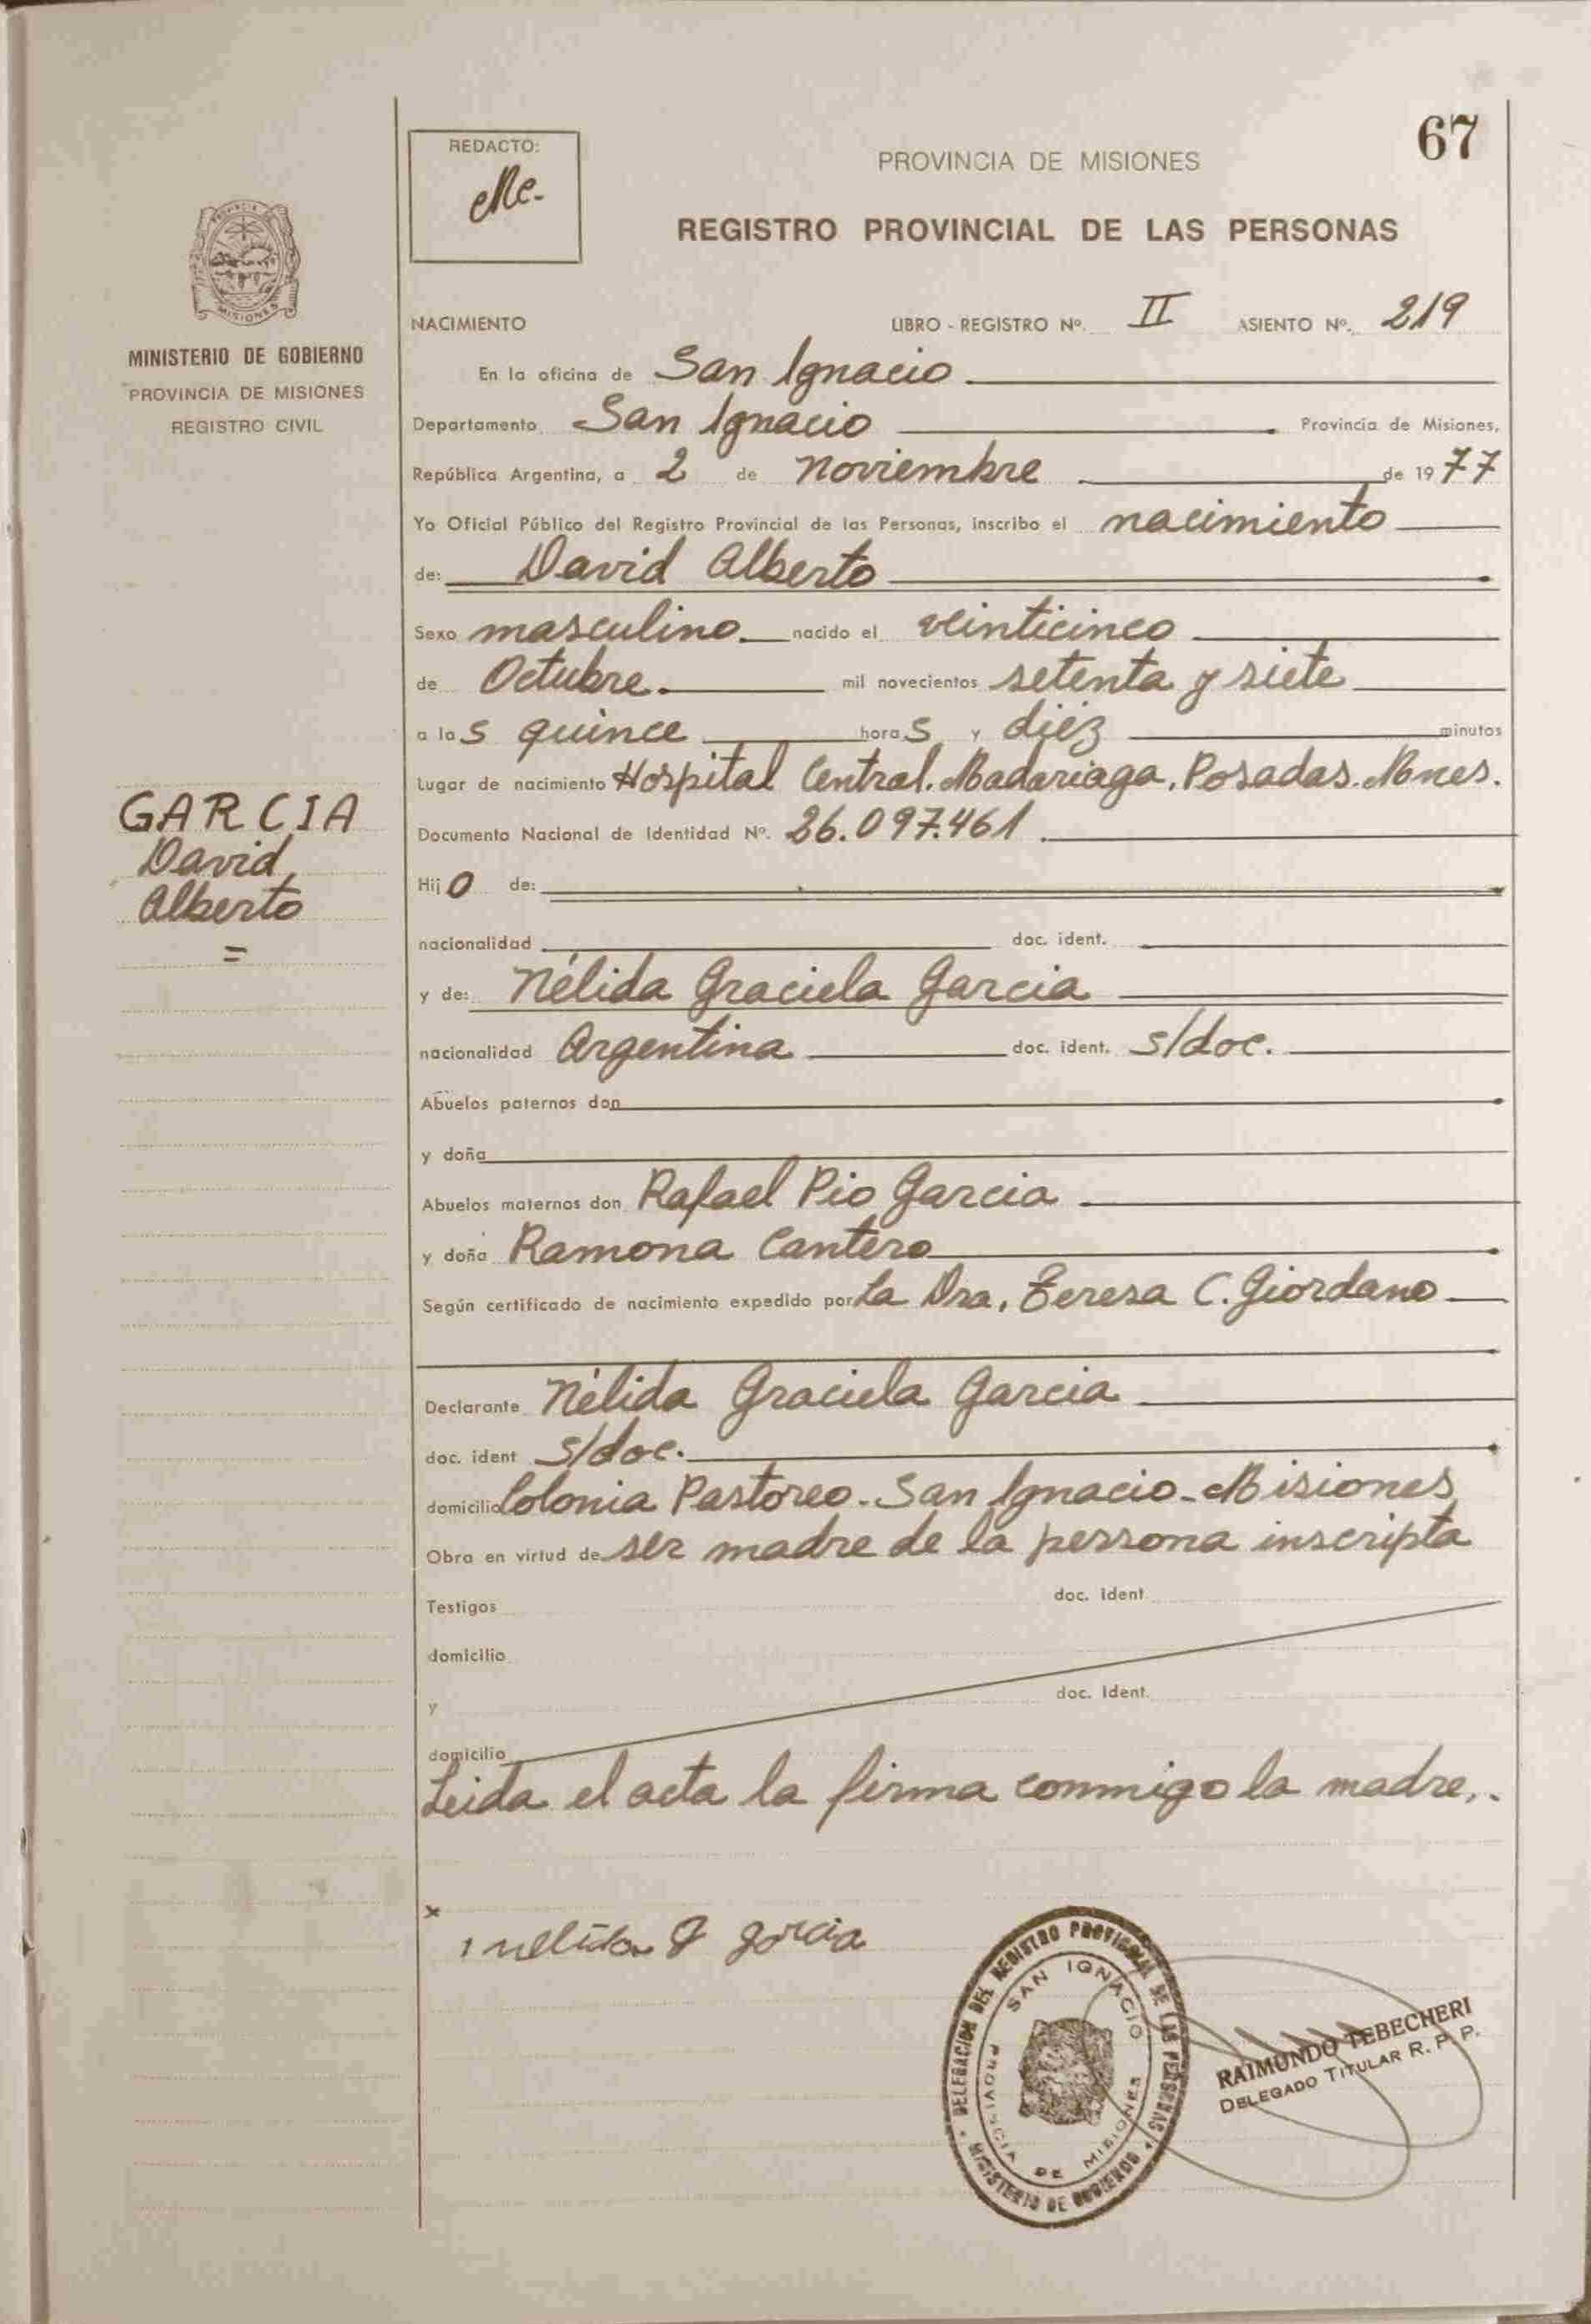 67
REDACTO:
PROVINCIA DE MISIONES
REGISTRO PROVINCIAL DE LAS PERSONAS
MISIONES
MINISTERIO DE GOBIERNO
PROVINCIA DE MISIONES
REGISTRO CIVIL
GARCIA
David
Alberto
=
NACIMIENTO LIBRO - REGISTRO Nº. II ASIENTO Nº. 219
En la oficina de San Ignacio
Departamento San Ignacio Provincia de Misiones,
República Argentina, a 2 de noviembre de 1977
Yo Oficial Público del Registro Provincial de las Personas, inscribo el nacimiento
de: David Alberto
Sexo masculino nacido el veinticinco
de Octubre. mil novecientos setenta y siete
a las quince horas y diéz minutos
Lugar de nacimiento Hospital Central. Madariaga, Posadas. Mnes.
Documento Nacional de Identidad Nº. 26.097.461
Hijo de:
nacionalidad doc. ident.
y de: Nélida Graciela Garcia
nacionalidad Argentina doc. ident. s/doc.
Abuelos paternos don
y doña
Abuelos maternos don Rafael Pio Garcia
y doña Ramona Cantero
Según certificado de nacimiento expedido por La Dra. Teresa C. Giordano
Declarante Nélida Graciela Garcia
doc. ident s/doc.
domicilio Colonia Pastoreo. San Ignacio - Misiones
Obra en virtud de ser madre de la persona inscripta
Testigos doc. ident
domicilio
y doc. ident.
domicilio
Leida el acta la firma conmigo la madre,.
x
nellida g garcia
DELEGACION DEL REGISTRO PROVINCIAL DE LAS PERSONAS
MINISTERIO DE GOBIERNO
SAN IGNACIO
PROVINCIA DE MISIONES
RAIMUNDO TEBECHERI
DELEGADO TITULAR R. P. P.